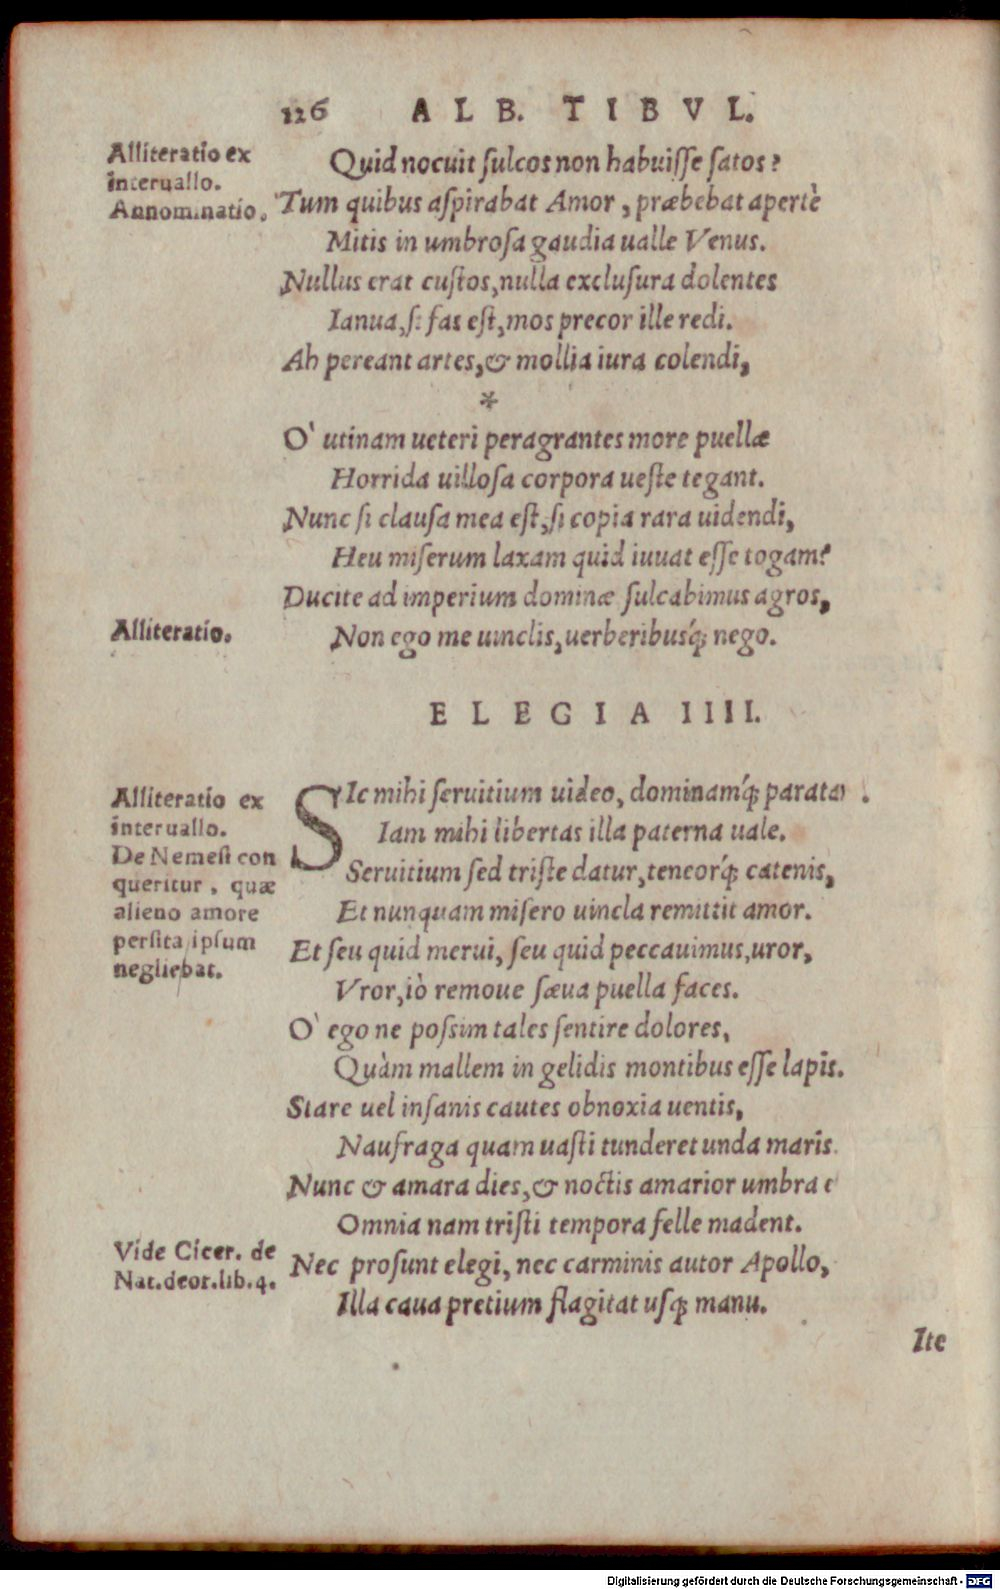 126 ALB. TIBVL.
Alliteratio ex
interuallo.
Annominatio.
Quid nocuit ſulcos non habuiſſe ſatos?
Tum quibus aſpirabat Amor, præbebat apertè
Mitis in umbroſa gaudia ualle Venus.
Nullus erat cuſtos, nulla excluſura dolentes
Ianua, ſi fas eſt, mos precor ille redi.
Ah pereant artes, & mollia iura colendi,
*
O' utinam ueteri peragrantes more puellæ
Horrida uilloſa corpora ueſte tegant.
Nunc ſi clauſa mea eſt, ſi copia rara uidendi,
Heu miſerum laxam quid iuuat eſſe togam?
Ducite ad imperium dominæ ſulcabimus agros,
Alliteratio.
Non ego me uinclis, uerberibusq́; nego.
ELEGIA IIII.
Alliteratio ex
interuallo.
De Nemeſi con
queritur, quæ
alieno amore
perſita ipſum
negliebat.
SIc mihi ſeruitium uideo, dominamq́; paratam.
Iam mihi libertas illa paterna uale.
Seruitium ſed triſte datur, teneorq́; catenis,
Et nunquam miſero uincla remittit amor.
Et ſeu quid merui, ſeu quid peccauimus, uror,
Vror, iò remoue ſæua puella faces.
O' ego ne poſsim tales ſentire dolores,
Quàm mallem in gelidis montibus eſſe lapis.
Stare uel inſanis cautes obnoxia uentis,
Naufraga quam uaſti tunderet unda maris.
Nunc & amara dies, & noctis amarior umbra e
Omnia nam triſti tempora felle madent.
Vide Cicer. de
Nat. deor. lib. 4.
Nec proſunt elegi, nec carminis autor Apollo,
Illa caua pretium flagitat uſq; manu.
Ite
Digitalisierung gefördert durch die Deutsche Forschungsgemeinschaft - DFG